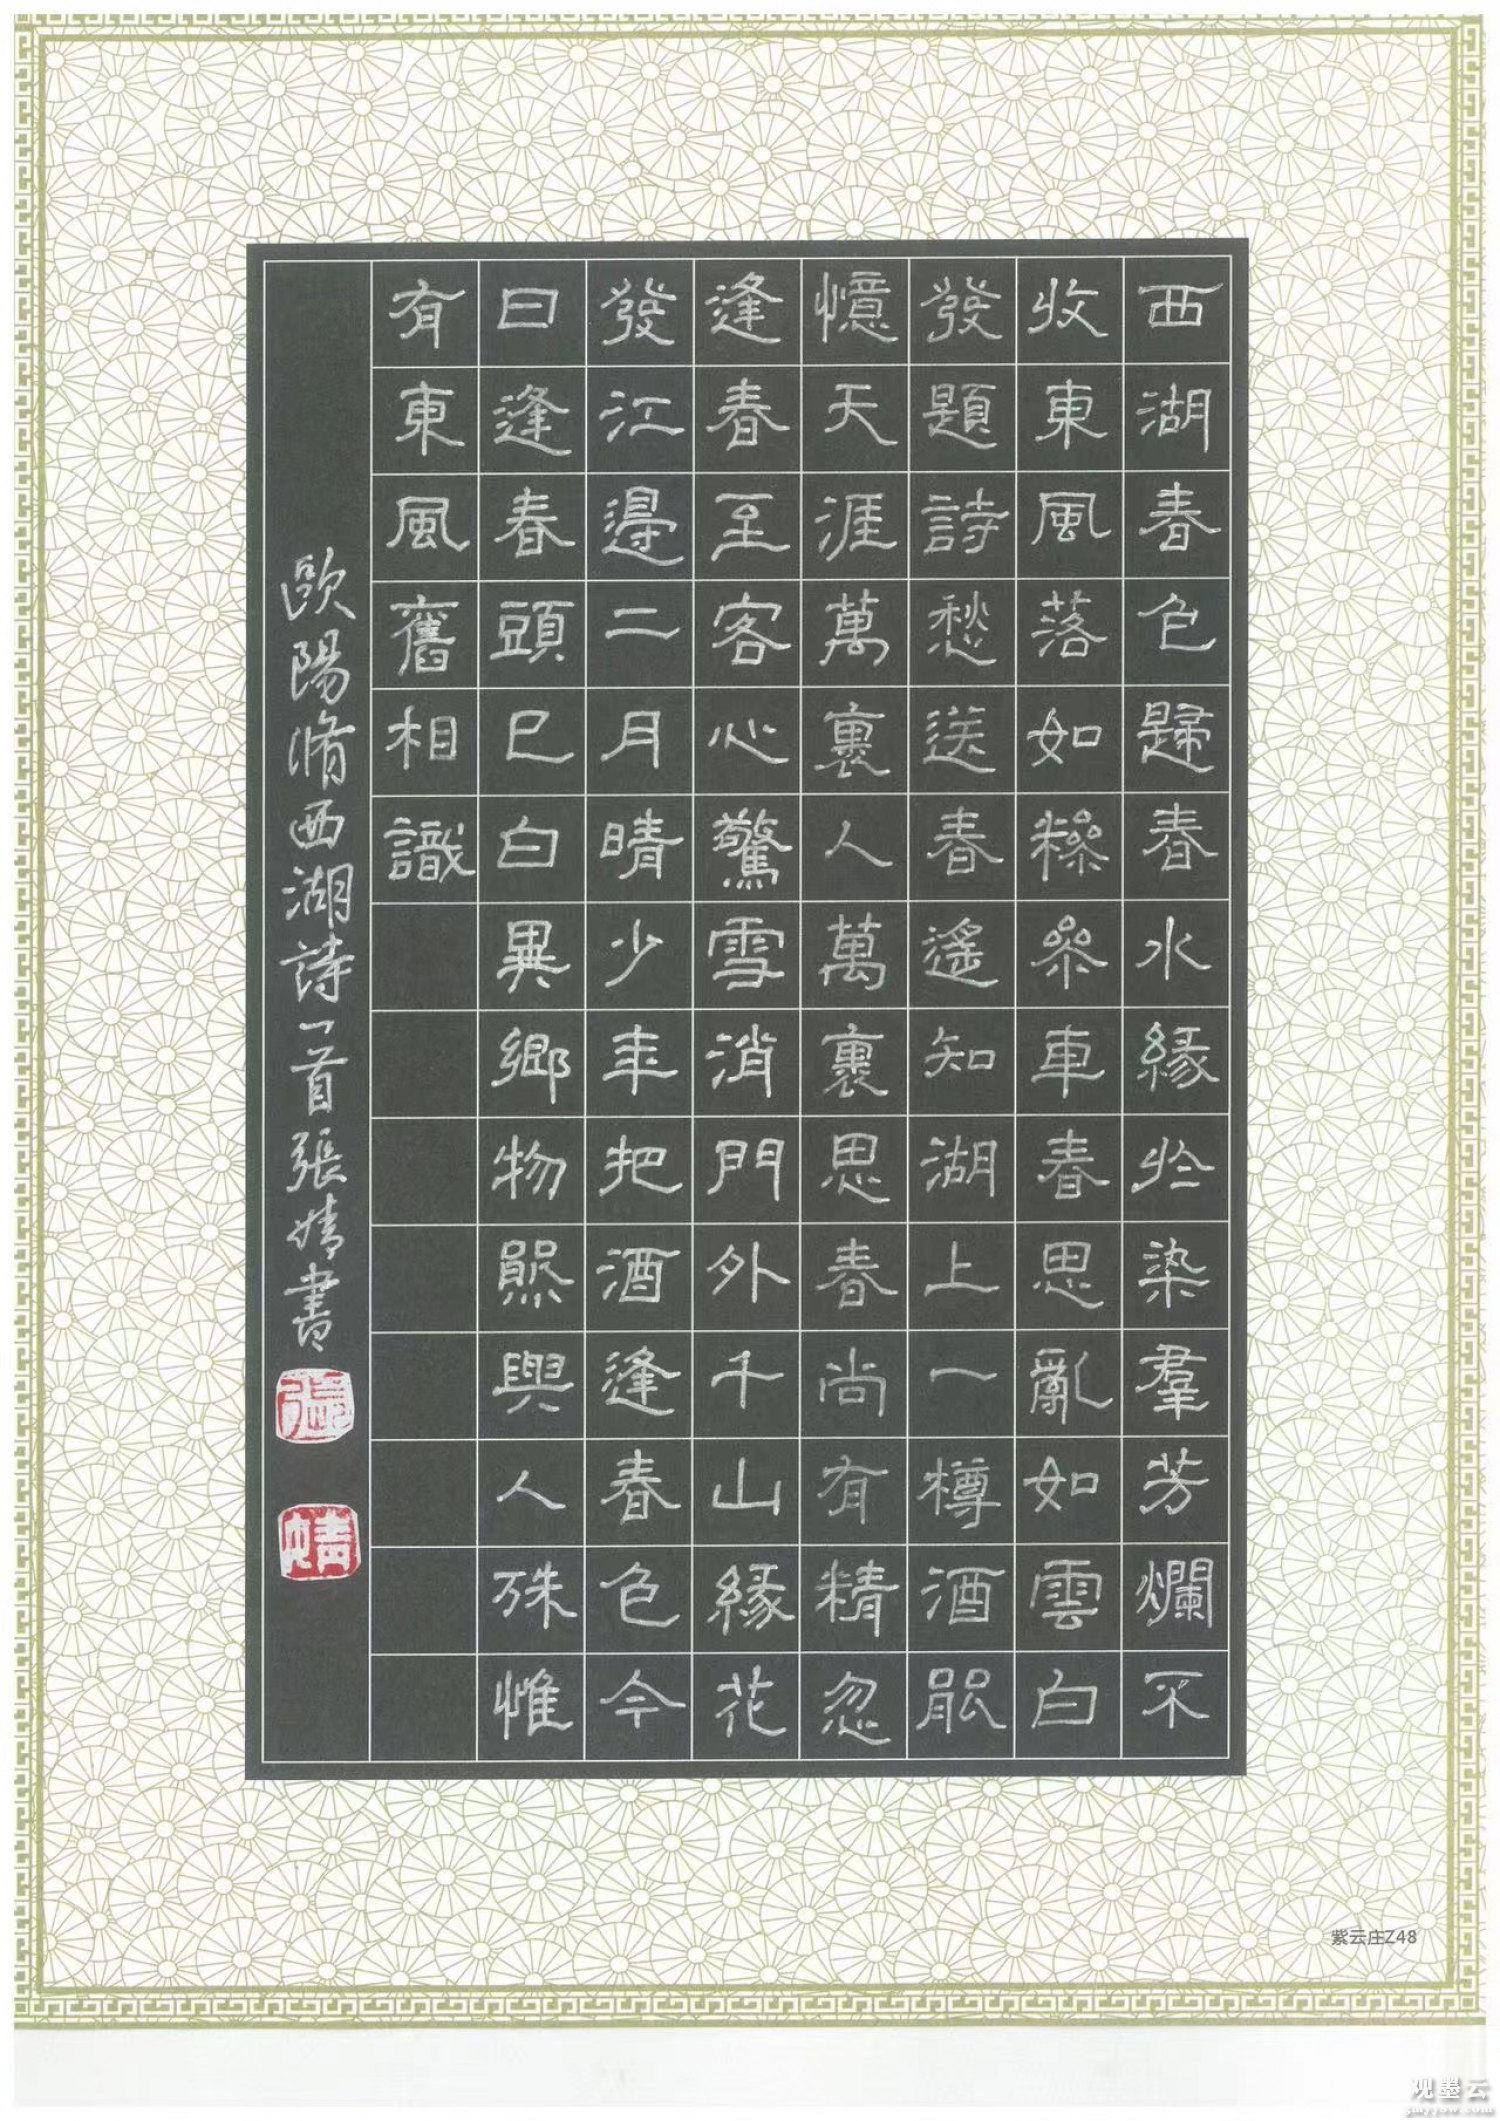 西湖春色歸春水緣於染羣芳爛不
收東風落如糝參車春思亂如雲白
發題詩愁送春遙知湖上一樽酒能
憶天涯萬裏人萬裏思春尚有精忽
逢春至客心驚雪消門外千山緣花
發江邊二月晴少年把酒逢春色今
日逢春頭已白異鄉物態與人殊惟
有東風舊相識
歐陽脩西湖詩一首張婧書
張
婧
紫云庄Z48
观墨云
gmyyow.com